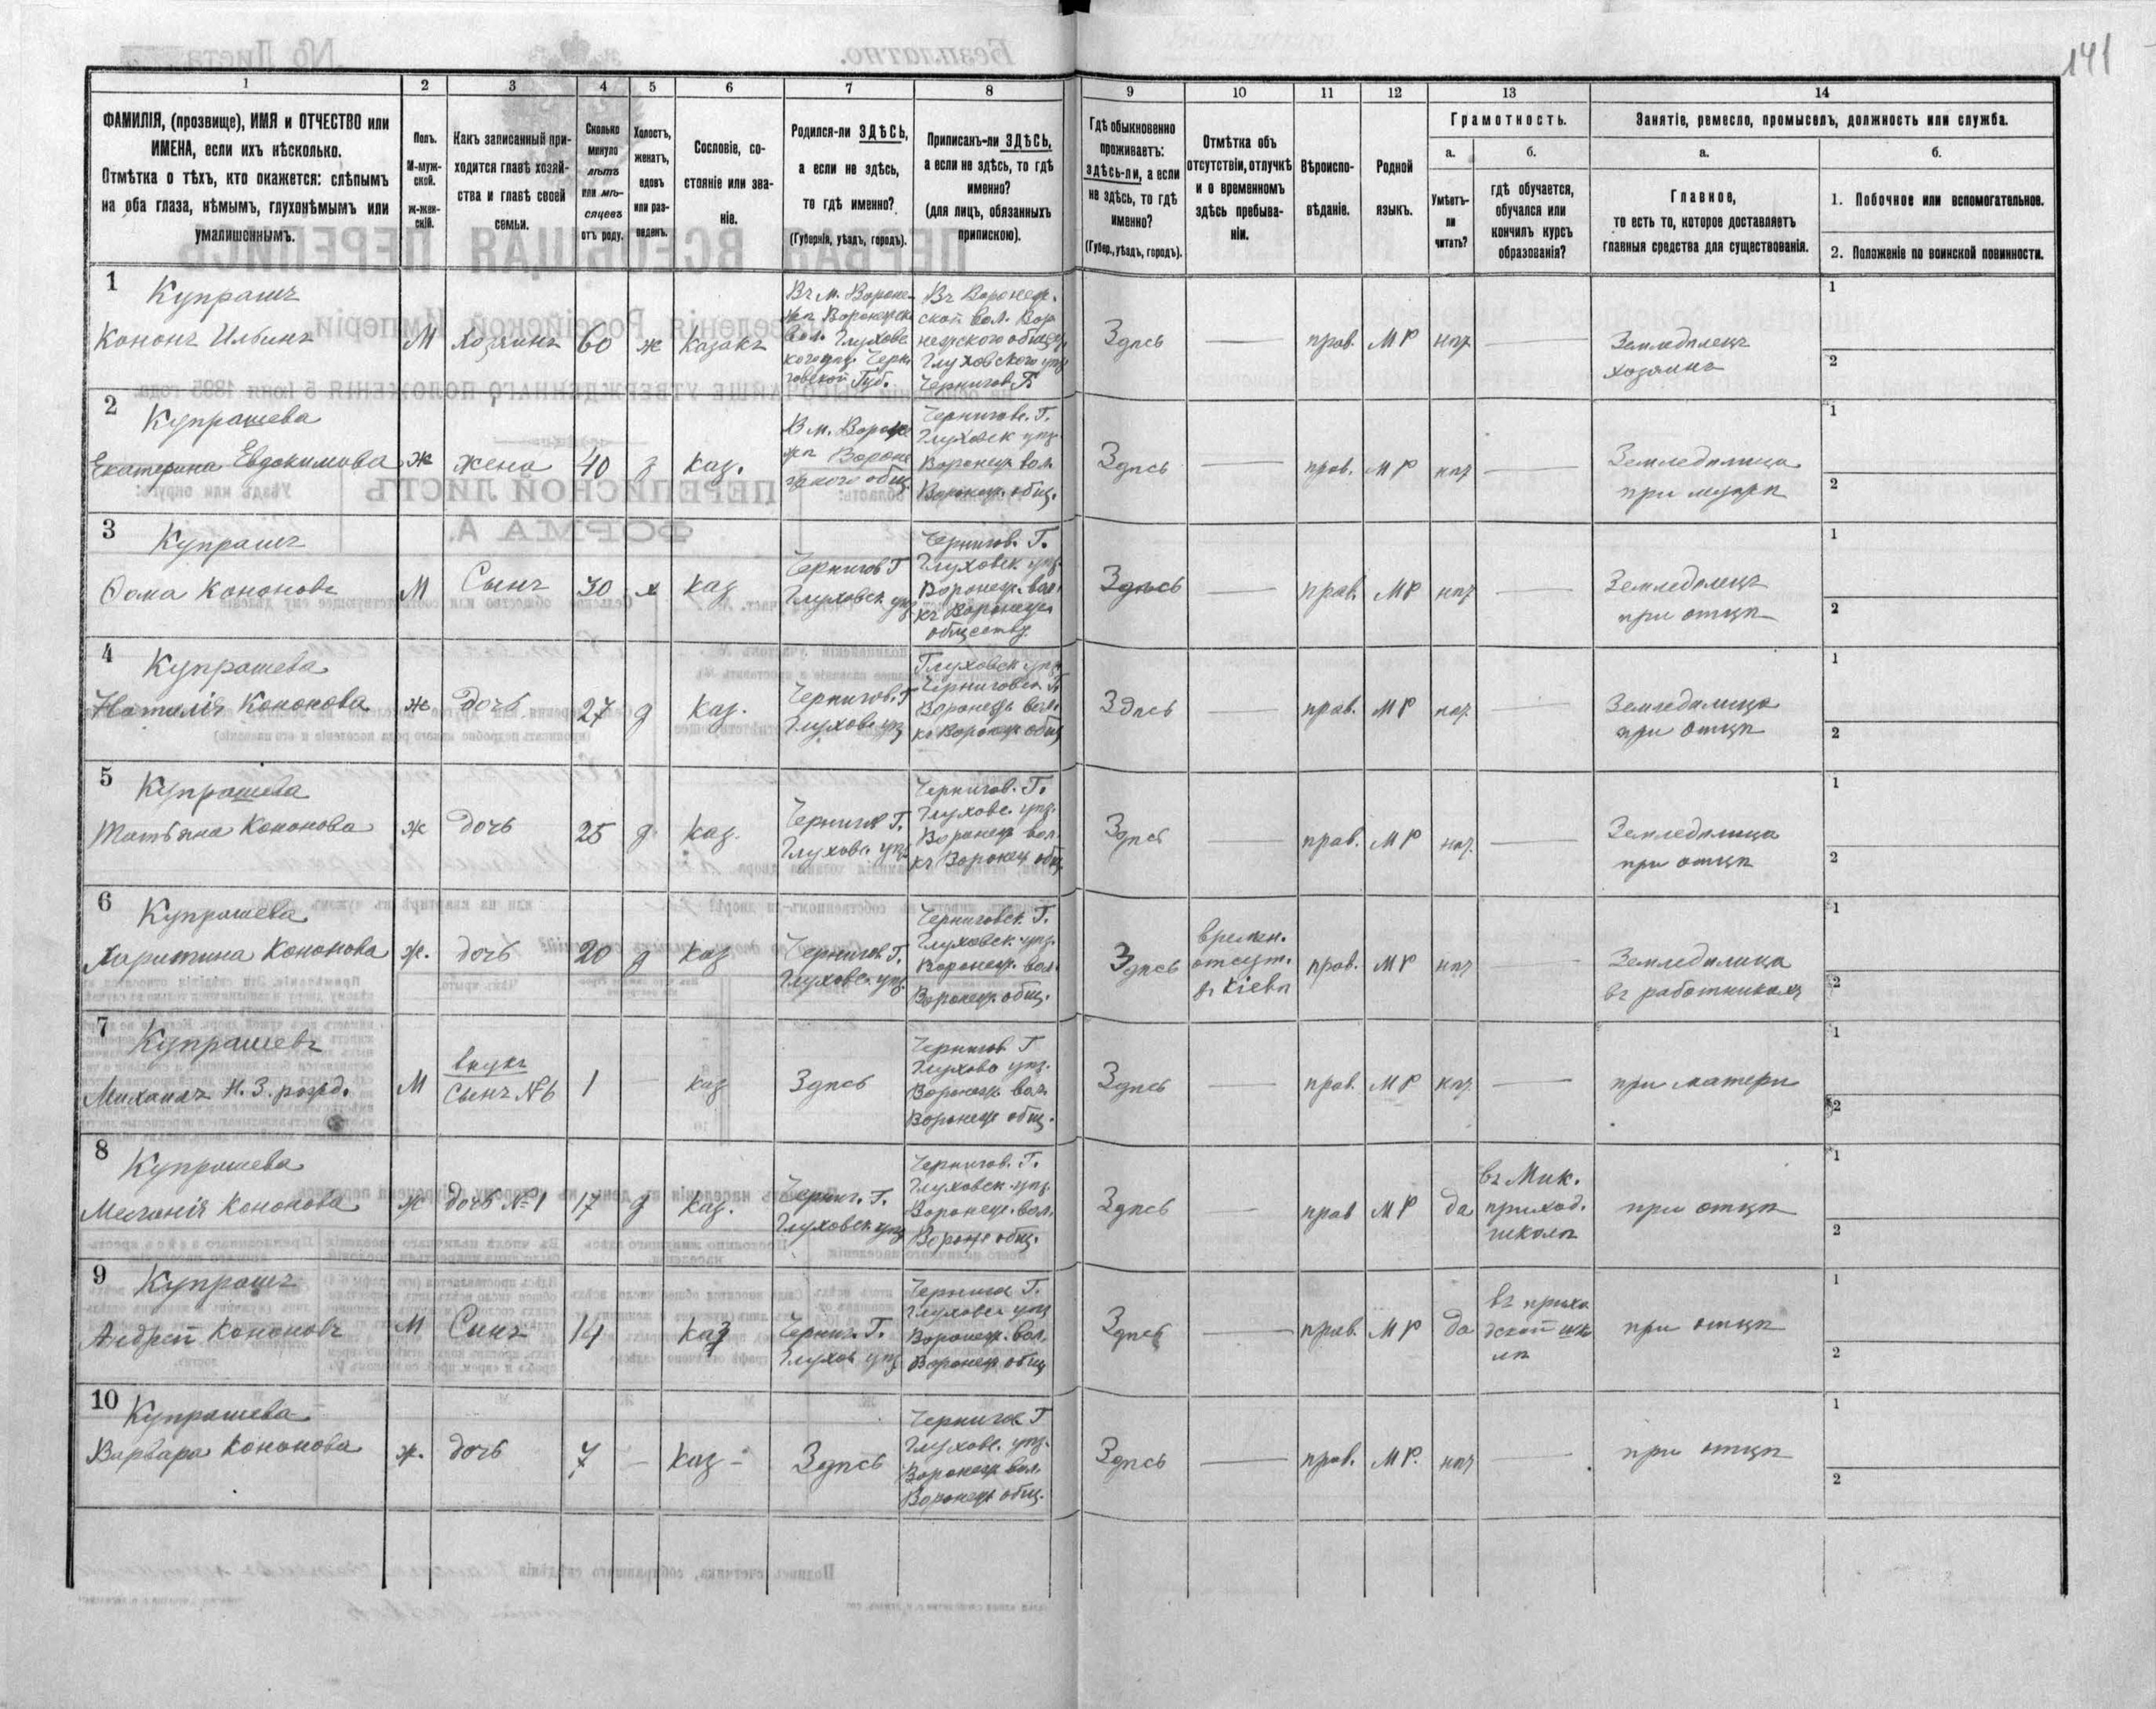 141
1 2 3 4 5 6 7 8 9 10 11 12 13 14
ФАМИЛІЯ, (прозвище), ИМЯ и ОТЧЕСТВО или
ИМЕНА, если ихъ нѣсколько.
Отмѣтка о тѣхъ, кто окажется: слѣпымъ
на оба глаза, нѣмымъ, глухонѣмымъ или
умалишеннымъ.
Полъ.
М-муж-
ской.
Ж-жен-
скій.
Какъ записанный при-
ходится главѣ хозяй-
ства и главѣ своей
семьи.
Сколько
минуло
лѣтъ
или мѣ-
сяцевъ
отъ роду.
Холостъ,
женатъ,
вдовъ
или раз-
веденъ.
Сословіе, со-
стояніе или зва-
ніе.
Родился-ли ЗДѢСЬ,
а если не здѣсь,
то гдѣ именно?
(Губернія, уѣздъ, городъ).
Приписанъ-ли ЗДѢСЬ,
а если не здѣсь, то гдѣ
именно?
(для лицъ, обязанныхъ
припискою).
Гдѣ обыкновенно
проживаетъ:
здѣсь-ли, а если
не здѣсь, то гдѣ
именно?
(Губер., уѣздъ, городъ).
Отмѣтка объ
отсутствіи, отлучкѣ
и о временномъ
здѣсь пребыва-
ніи.
Вѣроиспо-
вѣданіе.
Родной
языкъ.
Грамотность.
а.
Умѣетъ-
ли
читать?
б.
гдѣ обучается,
обучался или
кончилъ курсъ
образованія?
Занятіе, ремесло, промыселъ, должность или служба.
а.
Главное,
то есть то, которое доставляетъ
главныя средства для существованія.
б.
1. Побочное или вспомогательное.
2. Положеніе по воинской повинности.
1
Купрашъ
Кононъ Ильинъ
М
хозяинъ
60
ж
казакъ
Въ м. Вороне-
жѣ Воронежск
вол. Глуховс
каго уѣз. Черни
говской Губ.
Въ Воронеж.
ской вол. Вор
нежского общес
Глуховского уѣз
Чернигов Г.
Здѣсь
прав.
МР
нѣт
Земледѣлецъ
хозяинъ
1
2
2
Купрашева
Екатерина Евдокимова
ж
жена
40
з
каз.
В м. Вороне
жѣ Вороне
жского общ.
Чернигове. Г.
Глуховск уѣз.
Воронеж вол.
Воронеж. общ.
Здѣсь
прав.
МР
нѣт
Земледѣлица
при мужѣ
1
2
3
Купрашъ
Ѳома Кононовъ
М
Сынъ
30
х
каз
Чернигов Г
Глуховск уѣз
Чернигов. Г.
Глуховск уѣз.
Воронеж. вол.
къ Воронеж.
обществу
Здѣсь
прав.
МР
нѣт
Земледѣлецъ
при отцѣ
1
2
4
Купрашева
Наталія Кононова
ж
дочь
27
д
каз.
Чернигов. Г
Глухове уѣз
Глуховск уѣз
Черниговск Г.
Воронежь вол.
къ Воронеж общ
Здѣсь
прав.
МР
нѣт.
Земледѣлица
при отцѣ
1
2
5
Купрашева
Татьяна Кононова
ж
дочь
25
д
каз.
Чернигов Г.
Глухове. уѣз.
Чернигов. Г.
Глухове. уѣз.
Воронеж вол.
къ Воронеж общ
Здѣсь
прав.
МР
нѣт.
Земледѣлица
при отцѣ
1
2
6
Купрашева
Харитина Кононова
ж.
дочь
20
д
каз
Чернигов. Г.
Глуховск. уѣз
Черниговск. Г.
Глуховск. уѣз.
Воронеж. вол.
Воронеж общ.
Здѣсь
времен.
отсут.
в Кіевѣ
прав.
МР
нѣт
Земледѣлица
въ работникахъ
1
2
7
Купрашевъ
Михаилъ Н. З. рожд.
М
внукъ
Сынъ №6
1
каз
Здѣсь
Чернигов Г
Глухово уѣз.
Воронежь вол.
Воронеж общ.
Здѣсь
прав.
МР
нѣт
при матери
1
2
8
Купрашева
Меланія Кононова
ж
дочь №1
17
д
каз.
Черниг. Г.
Глуховск уѣз
Чернигов. Г.
Глуховск уѣз.
Воронеж. вол.
Воронеж общ.
Здѣсь
прав
МР
да
въ Мик.
приход.
школѣ
при отцѣ
1
2
9
Купрашъ
Андрей Кононовъ
М
Сынъ
14
каз
Черниг. Г.
Глухов уѣз
Чернигов Г.
Глуховск уѣз
Воронеж. вол.
Воронеж общ
Здѣсь
прав.
МР
да
въ прихо
дской шко
лѣ
при отцѣ
1
2
10
Купрашева
Варвара Кононова
ж.
дочь
7
каз
Здѣсь
Чернигов Г
Глухове. уѣз.
Воронеж вол.
Воронежь общ.
Здѣсь
прав.
МР.
нѣт
при отцѣ
1
2